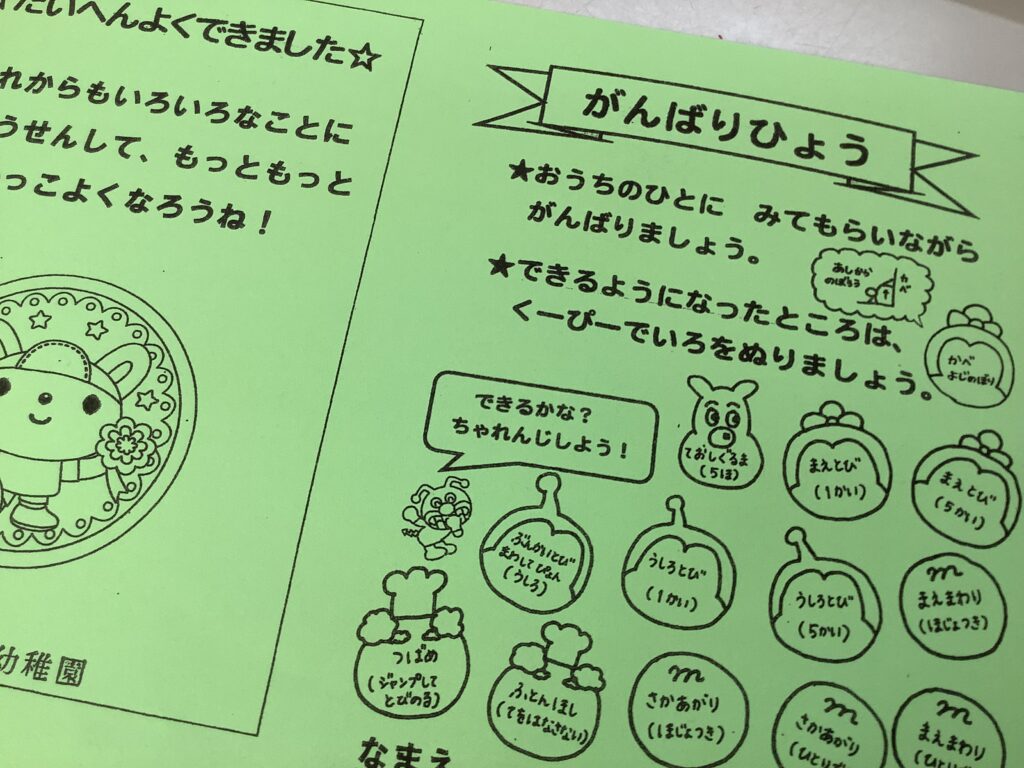 たいへんよくできました☆
れからもいろいろなことに
うせんして、もっともっと
っこよくなろうね！
幼稚園
がんばりひょう
★おうちのひとに みてもらいながら
がんばりましょう。
★できるようになったところは、
くーぴーでいろをぬりましょう。
あしから
のぼろう
カベ
かべ
よじのぼり
できるかな？
ちゃれんじしよう！
ておしぐるま
(5ほ)
まえとび
(1かい)
まえとび
(5かい)
ぶんかいとび
まわしてぴょん
(うしろ)
うしろとび
(1かい)
うしろとび
(5かい)
まえまわり
(ほじょつき)
つばめ
(ジャンプして
とびのる)
ふとんほし
(てをはなさない)
さかあがり
(ほじょつき)
さかあがり
(ひとりで
まえまわり
(ひとりで
なまえ